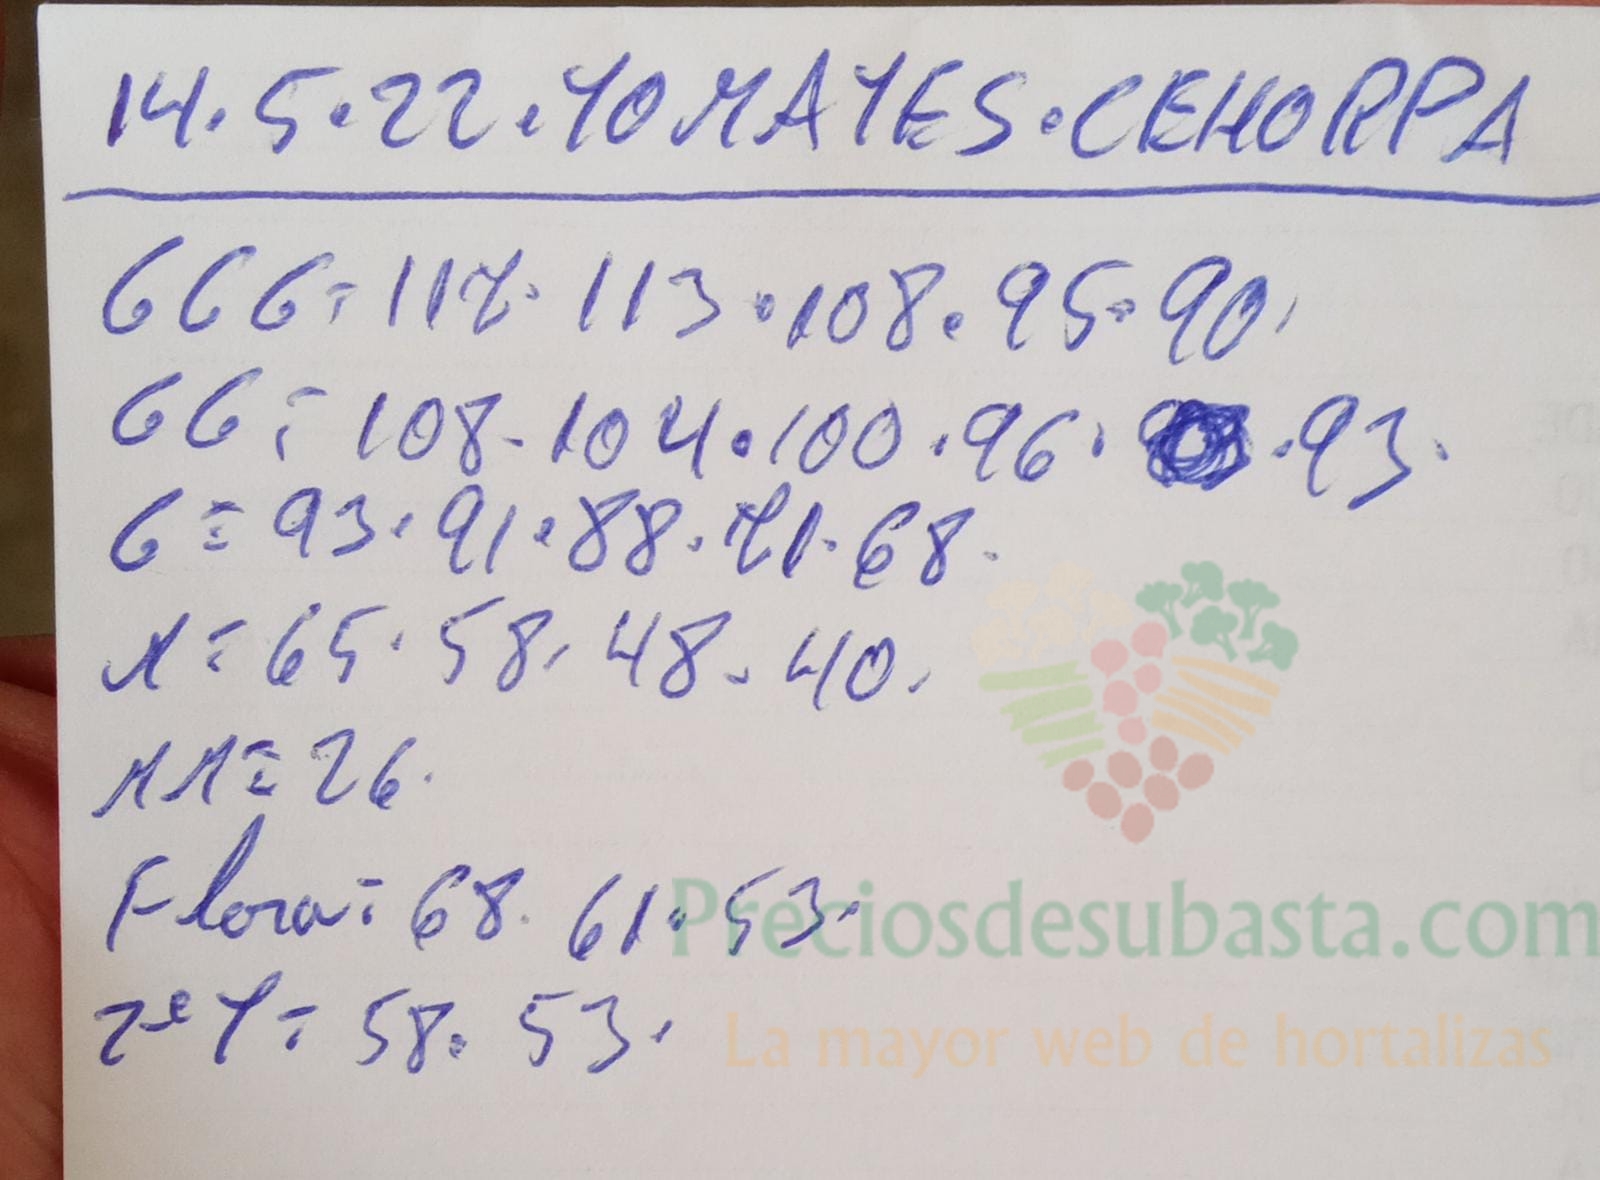 14.5.22.TOMATES.CEHORPA
GGG=117.113.108.95.90.
GG=108.104.100.96. .93.
G=93.91.88.71.68.
M=65.58.48.40.
MM=26.
Flora=68.61.53.
2ªT=58.53.
Preciosdesubasta.com
La mayor web de hortalizas